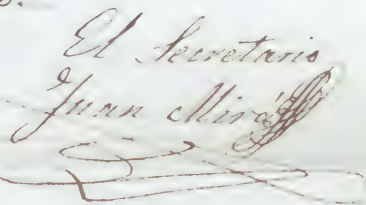 El Secretario
Juan Miró